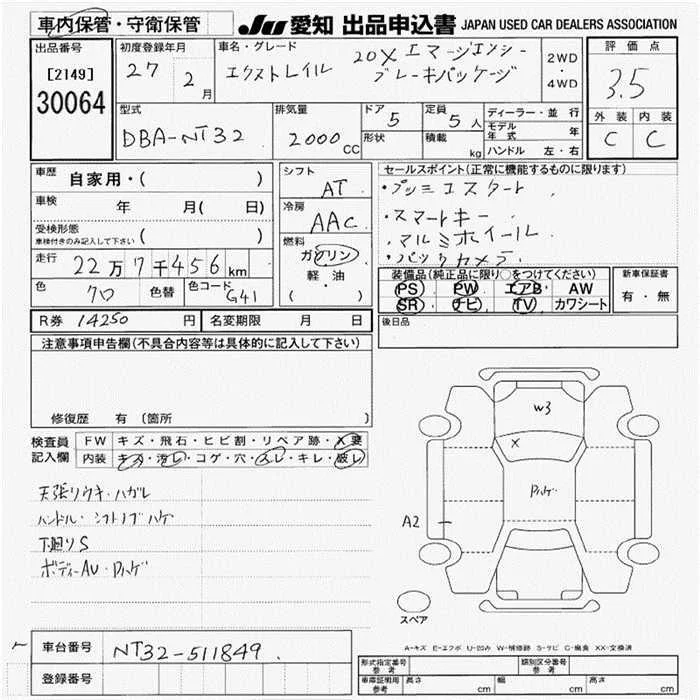 車内保管・守衛保管
JU 愛知 出品申込書 JAPAN USED CAR DEALERS ASSOCIATION
出品番号
[2149]
30064
初度登録年月
27 年 2月
車名・グレード
エクストレイル
20X エマージェンシー
ブレーキパッケージ
2WD
・
4WD
評価点
3.5
外装 内装
C C
型式
DBA-NT32
排気量
2000 CC
ドア 5
形状
定員 5人
積載 kg
ディーラー・並行
モデル年式 年
ハンドル 左・右
車歴 自家用・( )
車検 年 月( 日)
受検形態
車検付きのみ記入して下さい ( )
走行 22万7千456km
色 クロ 色替 色コード G41
シフト
AT
冷房
AAC
燃料
ガソリン
軽・油
( ・ )
セールスポイント(正常に機能するものに限ります)
・プッシュスタート
・スマートキー
・アルミホイール
・バックカメラ
装備品(純正品に限り○をつけてください)
PS PW エアB AW
SR ナビ TV カワシート
新車保証書
有・無
R券 14250 円 名変期限 月 日
後日品
注意事項申告欄(不具合内容等は具体的に記入して下さい)
修復歴 有〔箇所 〕
検査員記入欄
FW キズ・飛石・ヒビ割・リペア跡・X要
内装 キズ・汚レ・コゲ・穴・スレ・キレ・破レ
天張リウキ・ハガレ
ハンドル・シフトノブハゲ
下廻リS
ボディーAU・Pハゲ
W3
X
Pハゲ
A2
スペア
A-キズ E-エクボ U-凹み W-補修跡 S-サビ C-腐食 XX-交換済
車台番号 NT32-511849
登録番号
形式指定番号 参考 類別区分番号 参考
車庫証明用 参考 長さ cm 幅 cm 高さ cm